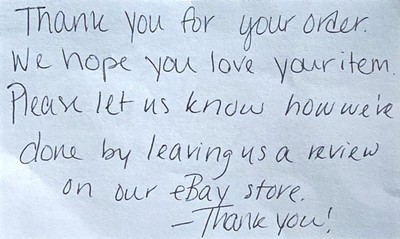 Thank you for your order.
We hope you love your item.
Please let us know how we've
done by leaving us a review
on our eBay store.
- Thank you!